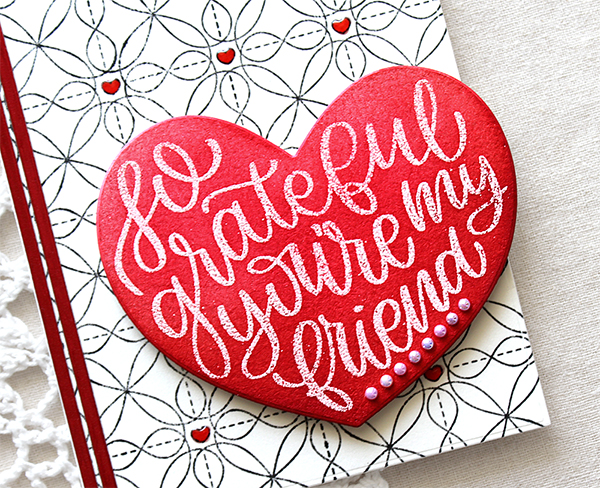 so
grateful
you're my
friend